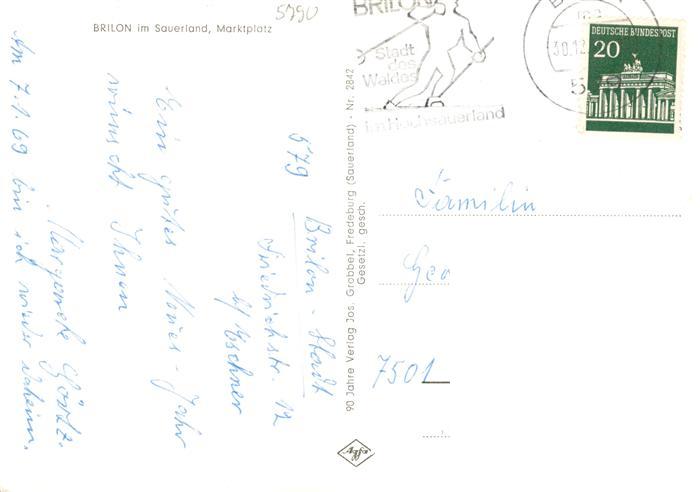 5790
BRILON im Sauerland, Marktplatz
Ein gutes Neues-Jahr
wünscht Ihnen
Margarete Görtz.
Am 7.1.69 bin ich wieder daheim.
579 Brilon-Stadt
Friedrichstr. 12
b/ Eschner
90 Jahre Verlag Jos. Grobbel, Fredeburg (Sauerland) - Nr. 2842
Gesetzl. gesch.
Agfa
BRILON
Stadt
des
Waldes
im Hochsauerland
30.12
DEUTSCHE BUNDESPOST
20
Familie
Geo
7501